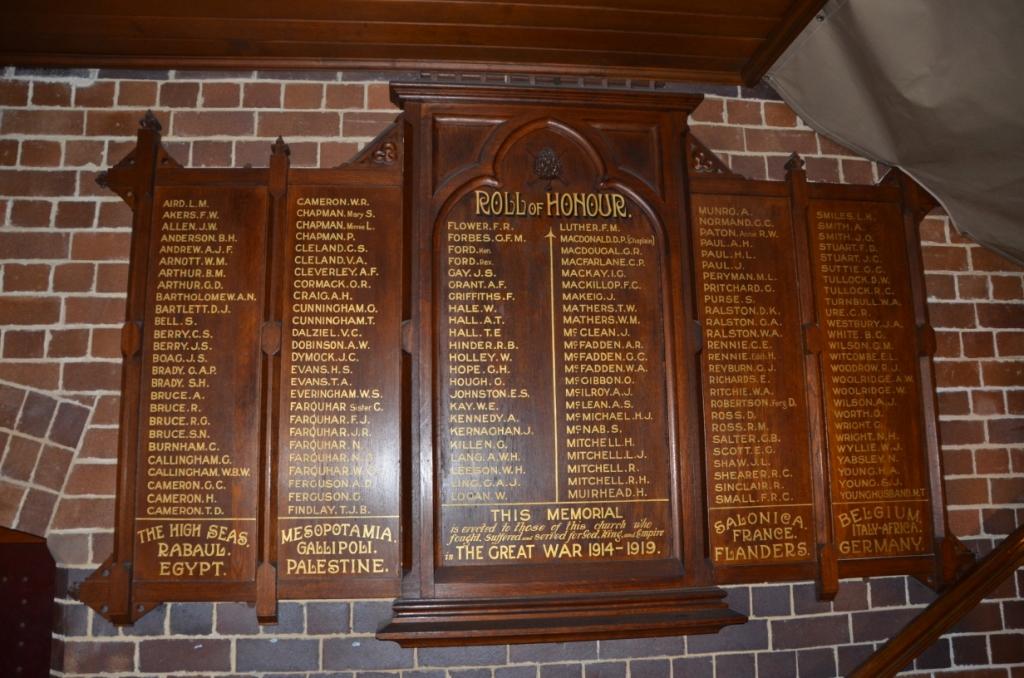 AIRD.L.M.
AKERS.F.W.
ALLEN.J.W.
ANDERSON.B.H.
ANDREW.A.J.F.
ARNOTT.W.M.
ARTHUR.B.M.
ARTHUR.G.D.
BARTHOLOMEW.A.N.
BARTLETT.D.J.
BELL.S.
BERRY.C.S.
BERRY.J.S.
BOAG.J.S.
BRADY.G.A.P.
BRADY.S.H.
BRUCE.A.
BRUCE.R.
BRUCE.R.G.
BRUCE.S.N.
BURNHAM.C.
CALLINGHAM.G.
CALLINGHAM.W.B.W.
CAMERON.G.C.
CAMERON.H.
CAMERON.T.D.
THE HIGH SEAS.
RABAUL.
EGYPT.
CAMERON.W.R.
CHAPMAN. Mary S.
CHAPMAN. Minnie L.
CHAPMAN.P.
CLELAND.C.S.
CLELAND.V.A.
CLEVERLEY.A.F.
CORMACK.O.R.
CRAIG.A.H.
CUNNINGHAM.G.
CUNNINGHAM.T.
DALZIEL.V.C.
DOBINSON.A.W.
DYMOCK.J.C.
EVANS.H.S.
EVANS.T.A.
EVERINGHAM.W.S.
FARQUHAR Sister C.
FARQUHAR.F.J.
FARQUHAR.J.R.
FARQUHAR.N.
FARQUHAR.N.
FARQUHAR.W.
FERGUSON.A.D.
FERGUSON.G.
FINDLAY.T.J.B.
MESOPOTAMIA.
GALLIPOLI.
PALESTINE.
ROLL OF HONOUR.
FLOWER.F.R.
FORBES.G.F.M.
FORD. Ken.
FORD. Rex.
GAY.J.S.
GRANT.A.F.
GRIFFITHS.F.
HALE.W.
HALL.A.T.
HALL.T.E
HINDER.R.B.
HOLLEY.W.
HOPE.G.H.
HOUGH.G.
JOHNSTON.E.S.
KAY.W.E.
KENNEDY.A.
KERNAGHAN.J.
KILLEN.G.
LANG.A.W.H.
LEESON.W.H.
LING.G.A.J.
LOGAN.W.
LUTHER.F.M
MACDONALD.D.P. (Chaplain)
MACDOUGAL.G.R.
MACFARLANE.C.P.
MACKAY.I.G.
MACKILLOP.F.C.
MAKEIG.J.
MATHERS.T.W.
MATHERS.W.M.
Mc CLEAN.J.
Mc FADDEN.A.R.
Mc FADDEN.G.C.
Mc FADDEN.W.A.
Mc GIBBON.O.
Mc ILROY.A.J.
Mc LEAN.A.S.
Mc MICHAEL.H.J.
Mc NAB.S.
MITCHELL.H.
MITCHELL.L.J.
MITCHELL.R.
MITCHELL.R.H.
MUIRHEAD.H.
THIS MEMORIAL
is erected to those of this church who
fought, suffered and served for God, King, and Empire
in THE GREAT WAR 1914-1919.
MUNRO.A.
NORMAND.G.C.
PATON. R.W.
PAUL.A.H.
PAUL.H.L.
PAUL.J.
PERYMAN.M.L.
PRITCHARD.G.
PURSE.S.
RALSTON.D.K.
RALSTON.G.A.
RALSTON.W.A.
RENNIE.C.E.
RENNIE. Edith H.
REYBURN.G.J.
RICHARDS.E.
RITCHIE.W.A.
ROBERTSON. Farq D.
ROSS.D.
ROSS.R.M.
SALTER.G.B.
SCOTT.E.G.
SHAW.J.L.
SHEARER.R.C.
SINCLAIR.R.
SMALL.F.R.C.
SALONICA.
FRANCE.
FLANDERS.
SMILES.L.K.
SMITH.A.
SMITH.J.O.
STUART.F.D.
STUART.J.C.
SUTTIE.G.C.
TULLOCK.D.W.
TULLOCK.R.C.
TURNBULL.W.A.
URE.C.R.
WESTBURY.J.A.
WHITE.B.C.
WILSON.G.M.
WITCOMBE.E.L.
WOODROW.R.J.
WOOLRIDGE.A.W.
WOOLRIDGE.W.
WILSON.A.J.
WORTH.O.
WRIGHT.G.
WRIGHT.N.H.
WYLLIE.W.J.
YABSLEY.N.
YOUNG.H.A.
YOUNG.S.J.
YOUNGHUSBAND.M.T.
BELGIUM.
ITALY-AFRICA.
GERMANY.